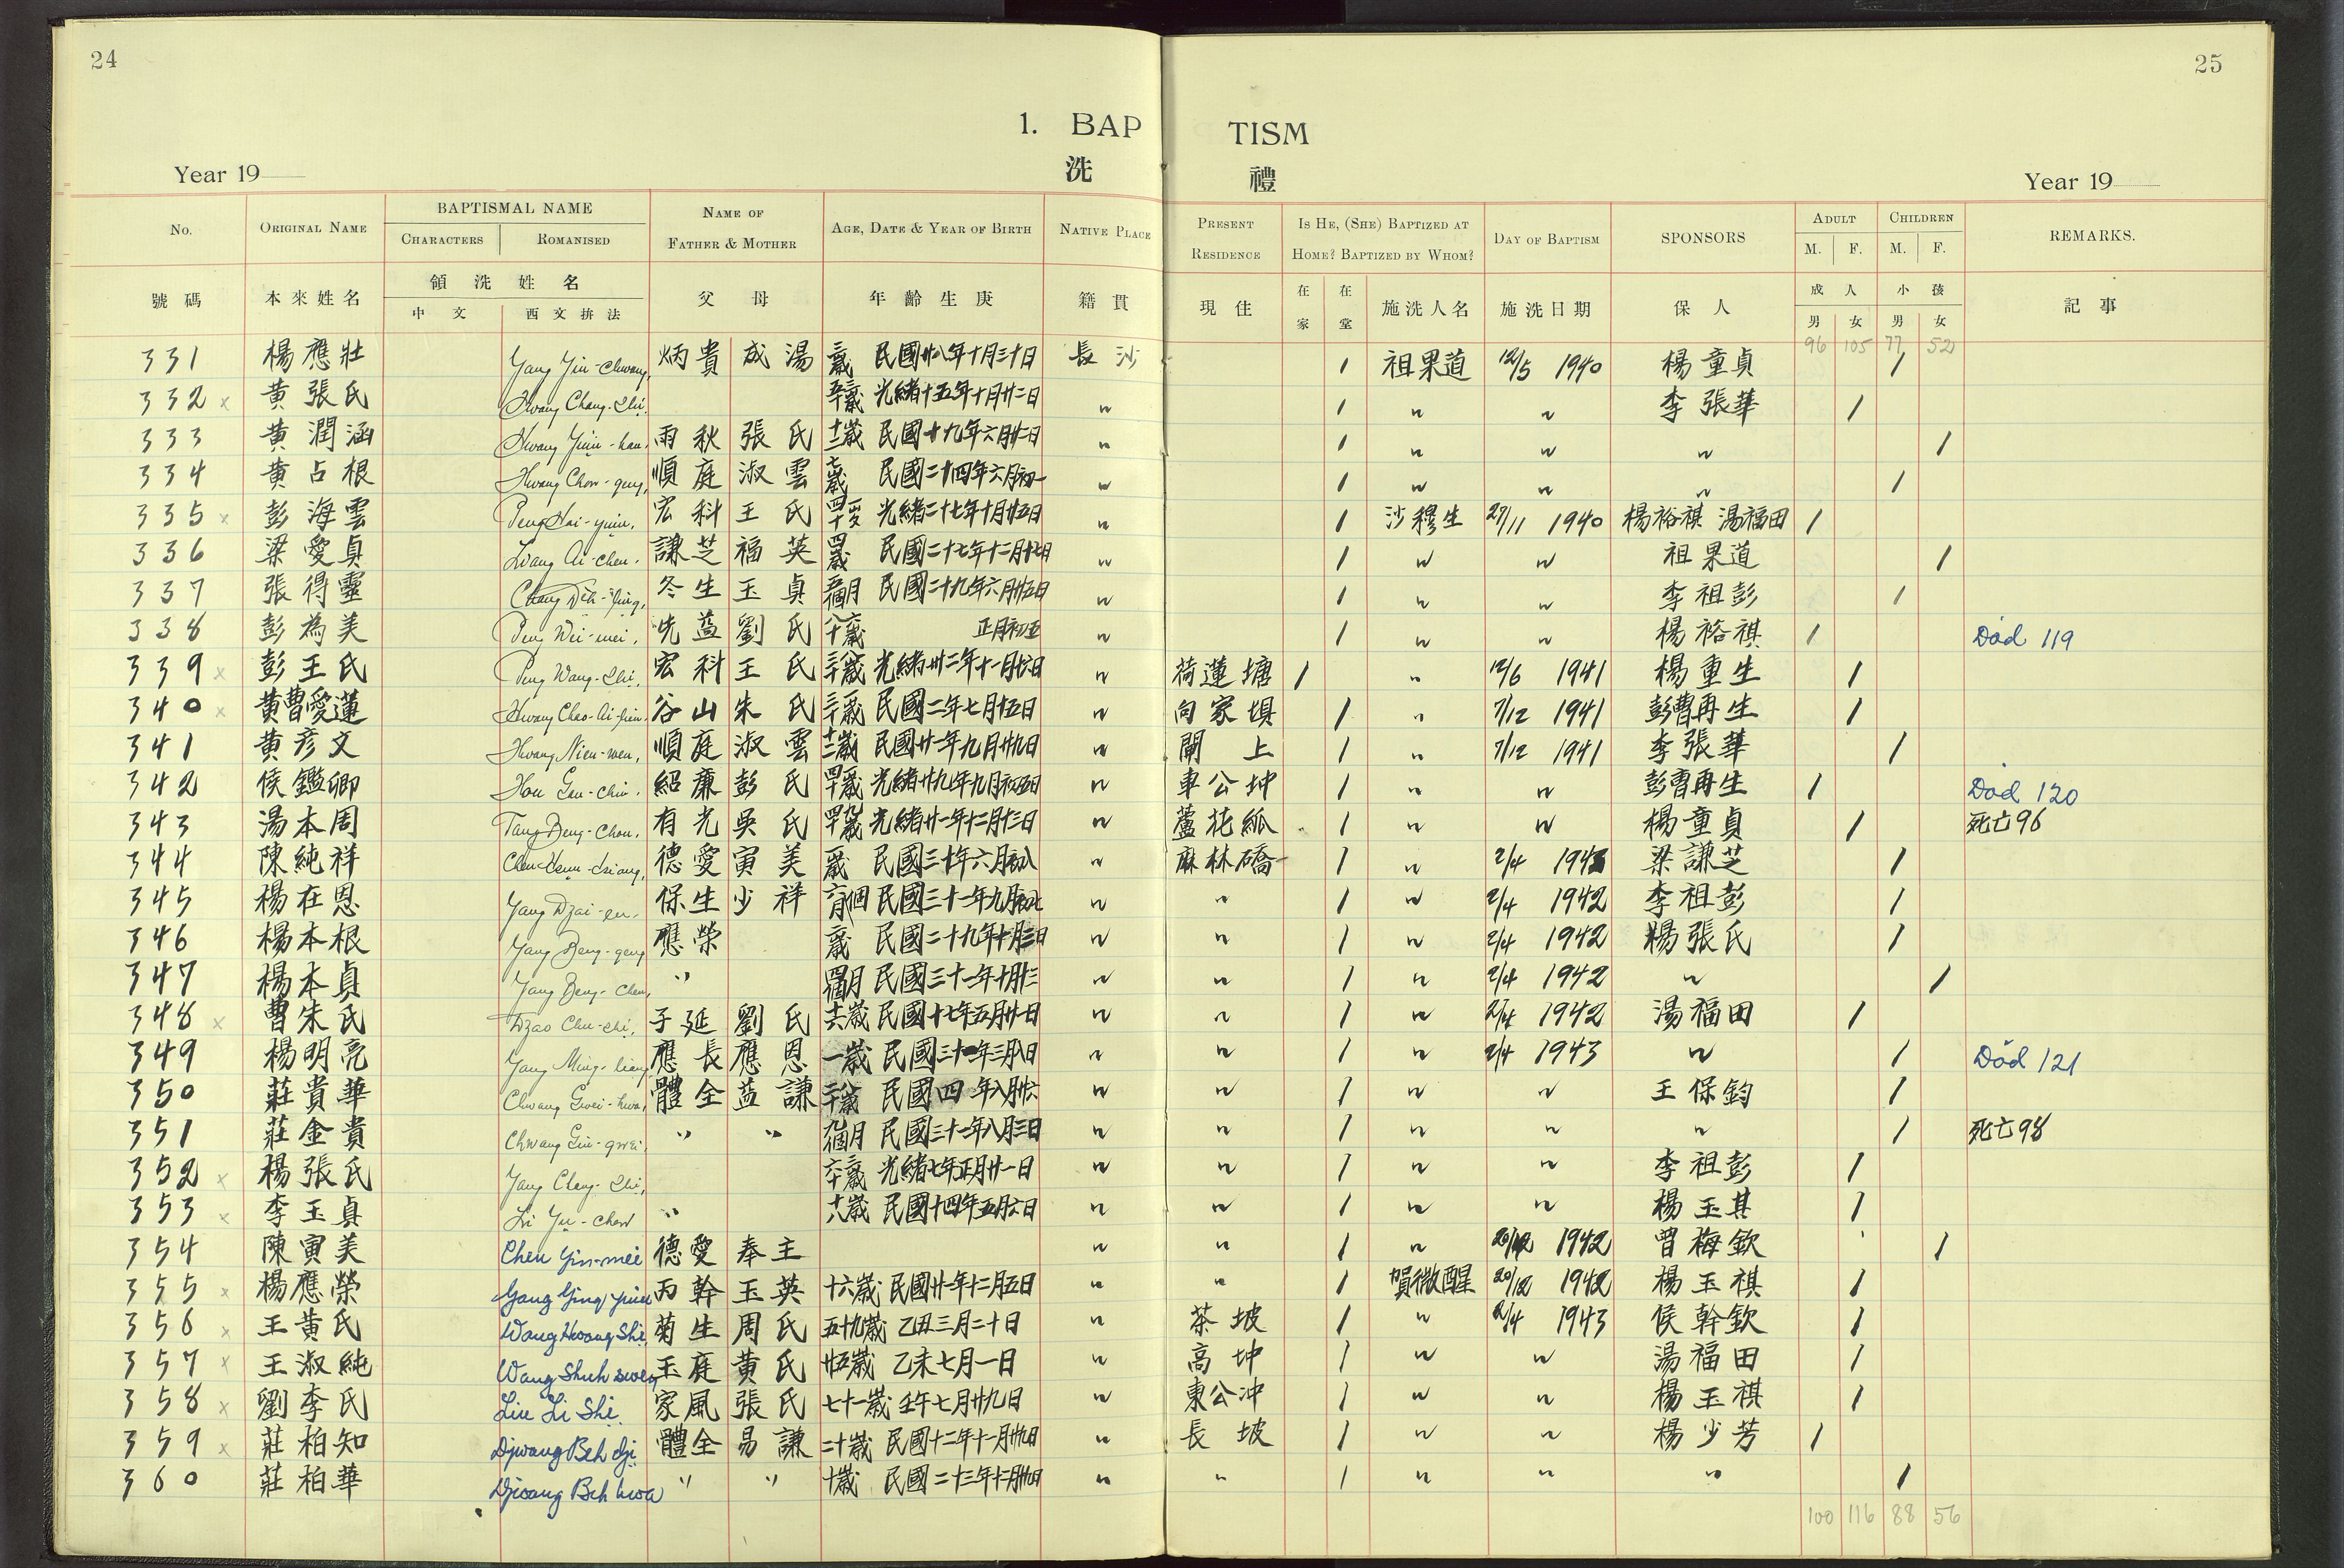 24
25
1. BAP TISM
洗 禮
Year 19
Year 19
No. ORIGINAL NAME BAPTISMAL NAME CHARACTERS ROMANISED NAME OF FATHER & MOTHER AGE, DATE & YEAR OF BIRTH NATIVE PLACE PRESENT RESIDENCE IS HE, (SHE) BAPTIZED AT HOME? BAPTIZED BY WHOM? DAY OF BAPTISM SPONSORS ADULT M. F. CHILDREN M. F. REMARKS.
號碼 本來姓名 領洗姓名 中文 西文拚法 父母 年齡生庚 籍貫 現住 在家 在堂 施洗人名 施洗日期 保人 成人 男 女 小孩 男 女 記事
96 105 77 52
331 楊應壯 Yang Yin-chwang, 炳貴 成湯 民國廿八年十月三十日 長沙 1 祖果道 12/5 1940 楊童貞 1
332 x 黃張氏 Hwang Chang-Shi. 光緒十五年十月廿二日 〃 1 〃 〃 李張華 1
333 黃潤涵 Hwang Yüin-han, 雨秋 張氏 民國十九年六月廿日 〃 1 〃 〃 〃 1
334 黃占根 Hwang Chan-geng, 順庭 淑雲 七歲 民國二十四年六月初一 〃 1 〃 〃 〃 1
335 x 彭海雲 Peng Hai-yüin, 宏科 王氏 光緒二十七年十月廿五日 〃 1 沙穆生 27/11 1940 楊裕祺 湯福田 1
336 梁愛貞 Liang Ai-chen. 謙芝 福英 四歲 民國二十七年十二月十七日 〃 1 〃 〃 祖果道 1
337 張得靈 Chang Deh-ling, 冬生 玉貞 民國二十九年六月廿五日 〃 1 〃 〃 李祖彭 1
338 彭為美 Peng Wei-mei, 先益 劉氏 正月初五 〃 1 〃 〃 楊裕祺 1 Död 119
339 x 彭王氏 Peng Wang-Shi, 宏科 王氏 光緒卅二年十一月廿六日 〃 荷蓮塘 1 〃 12/6 1941 楊重生 1
340 x 黃曹愛蓮 Hwang Chao-Ai-lien, 谷山 朱氏 民國二年七月十五日 〃 向家坝 1 〃 7/12 1941 彭曹再生 1
341 黃彥文 Hwang Nien-wen, 順庭 淑雲 民國廿一年九月廿九日 〃 閘上 1 〃 7/12 1941 李張華 1
342 侯鑑卿 Hou Gan-chin. 紹廉 彭氏 光緒廿九年九月初五日 〃 車公坤 1 〃 〃 彭曹再生 1 Död 120
343 湯本周 Tang Beng-Chou, 有光 吳氏 光緒廿一年十二月十三日 〃 蘆花 1 〃 〃 楊童貞 1 死亡96
344 陳純祥 德愛 寅美 民國三十年六月初八 〃 麻林礄 1 〃 2/4 梁謙芝 1
345 楊在恩 Yang Dzai-en, 保生 少祥 民國三十一年九月初七 〃 〃 1 〃 2/4 1942 李祖彭 1
346 楊本根 Yang Beng-geng 應榮 民國二十九年十月三日 〃 〃 1 〃 2/4 1942 楊張氏 1
347 楊本貞 Yang Beng-Chen, 〃 民國三十一年十月十三 〃 〃 1 〃 2/4 1942 〃 1
348 x 曹朱氏 Dzao Chu-shi, 子延 劉氏 民國十七年五月廿日 〃 〃 1 〃 2/4 1942 湯福田 1
349 楊明亮 Yang Ming-liang 應長 應恩 一歲 民國三十一年三月八日 〃 〃 1 〃 2/4 1943 〃 1 Död 121
350 莊貴華 Chwang Gwei-hwa, 體全 益謙 民國四年八月廿六 〃 〃 1 〃 〃 王保鈞 1
351 莊金貴 Chwang Gin-gwei, 〃 〃 九個月 民國三十一年八月三日 〃 〃 1 〃 〃 〃 1 死亡98
352 x 楊張氏 Yang Chang-Shi, 光緒七年正月廿一日 〃 〃 1 〃 〃 李祖彭 1
353 x 李玉貞 Li Yu-chen 〃 十八歲 民國十四年五月六日 〃 〃 1 〃 〃 楊玉其 1
354 陳寅美 Chen Yin-mei 德愛 奉主 〃 〃 1 〃 20/12 1942 曾梅欽 1
355 x 楊應榮 Yang Ying yuin 丙幹 玉英 十六歲 民國廿年十二月五日 〃 〃 1 賀微醒 20/12 1942 楊玉祺 1
356 x 王黃氏 Wang Hwang Shi 菊生 周氏 五十九歲 乙丑三月二十日 〃 茶坡 1 〃 2/4 1943 侯幹欽 1
357 x 王淑純 Wang Shuh swen 玉庭 黃氏 廿五歲 乙未七月一日 〃 高坤 1 〃 〃 湯福田 1
358 x 劉李氏 Liu Li Shi 家風 張氏 七十一歲 壬午七月廿九日 〃 東公冲 1 〃 〃 楊玉祺 1
359 x 莊柏知 Djwang Beh dji 體全 易謙 二十歲 民國十二年十一月廿九日 〃 長坡 1 〃 〃 楊少芳 1
360 莊柏華 Djwang Beh hwa 〃 〃 十歲 民國二十三年十二月廿九日 〃 〃 1 〃 〃 〃 1
100 116 88 56